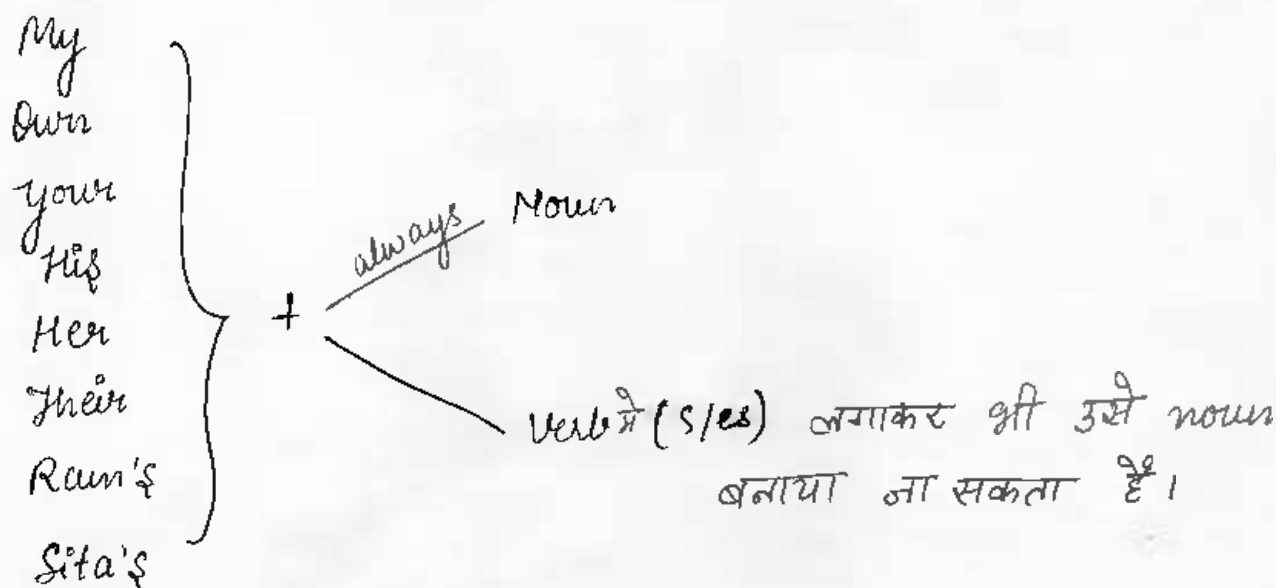 My
Own
your
His
Her
Their
Ram's
Sita's
+
always Noun
Verb में (s/es) लगाकर भी उसे noun
बनाया जा सकता है।